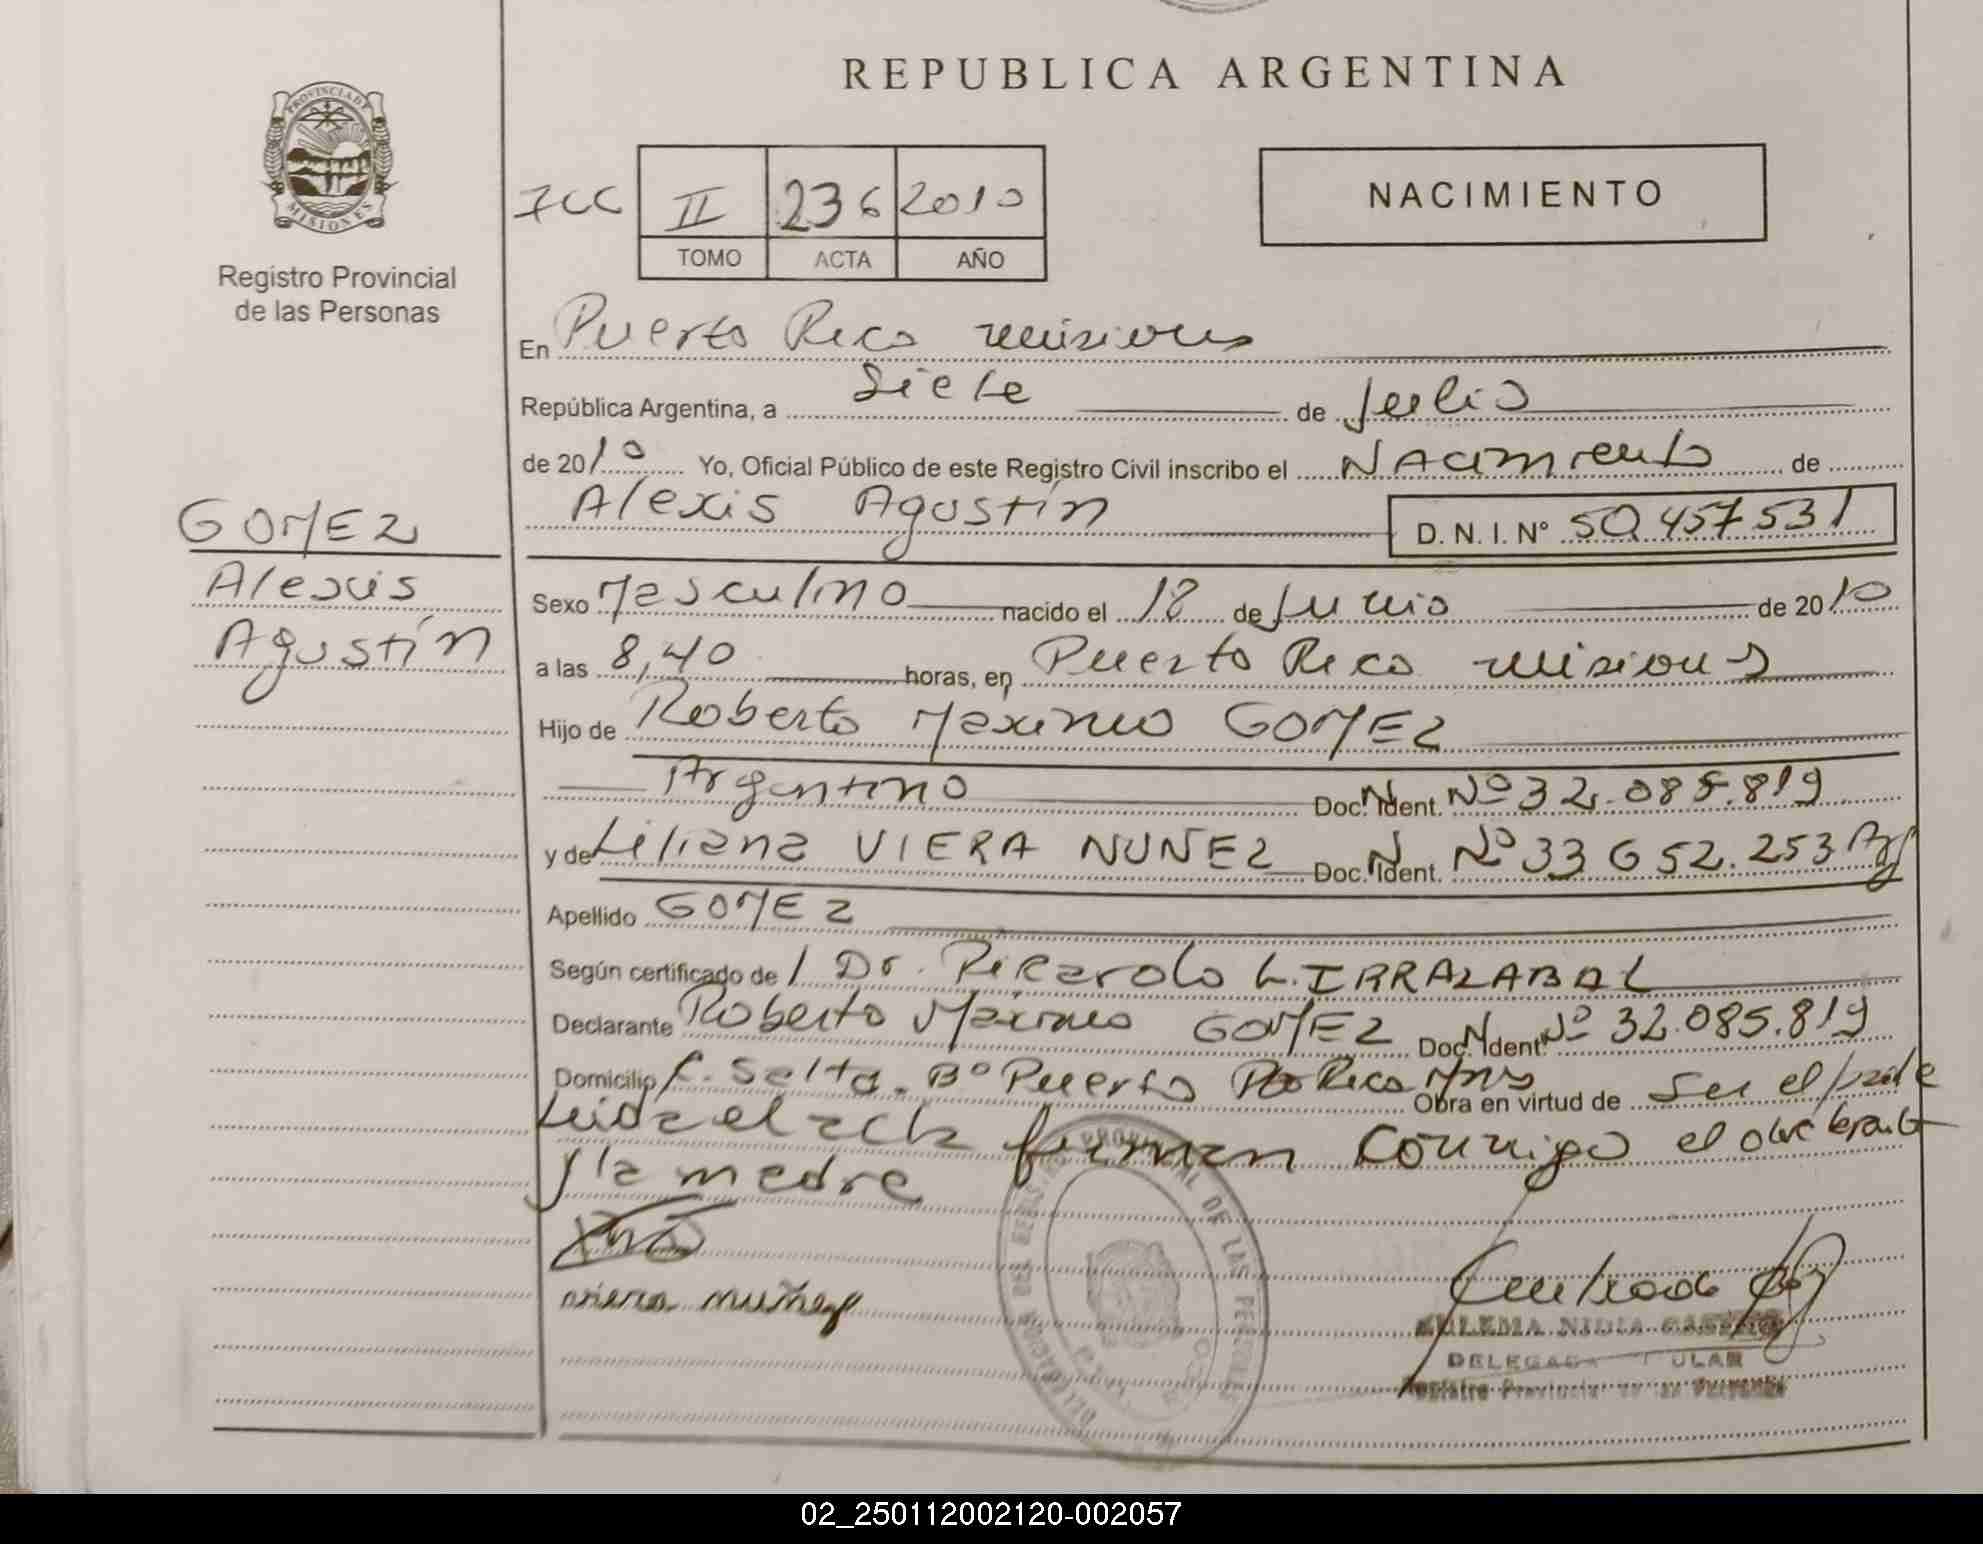 REPUBLICA ARGENTINA
PROVINCIA DE
MISIONES
Registro Provincial
de las Personas
II 236 2010
TOMO ACTA AÑO
NACIMIENTO
En Puerto Rico misiones
República Argentina, a siete de Julio
de 2010 Yo, Oficial Público de este Registro Civil inscribo el Nacimiento de
Alexis Agustín D. N. I. Nº 50.457.531
GOMEZ
Alexis
Agustín
Sexo Masculino nacido el 18 de Junio de 2010
a las 8,40 horas, en Puerto Rico misiones
Hijo de Roberto Maximo GOMEZ
Argentino Doc. Ident. Nº 32.085.819
y de Liliana VIERA NUÑEZ Doc. Ident. Nº 33652.253 Arg
Apellido GOMEZ
Según certificado de Dr. Ricardo L. IRRALABAL
Declarante Roberto Maximo GOMEZ Doc. Ident. Nº 32.085.819
Domicilio C. Salta. Bº Puerto Rico Mns Obra en virtud de ser el padre
Leida el acta firman conmigo el declarante
y la madre
viera nuñez
ZULEMA NIDIA CASTRO
DELEGADA TITULAR
Registro Provincial de las Personas
02_250112002120-002057